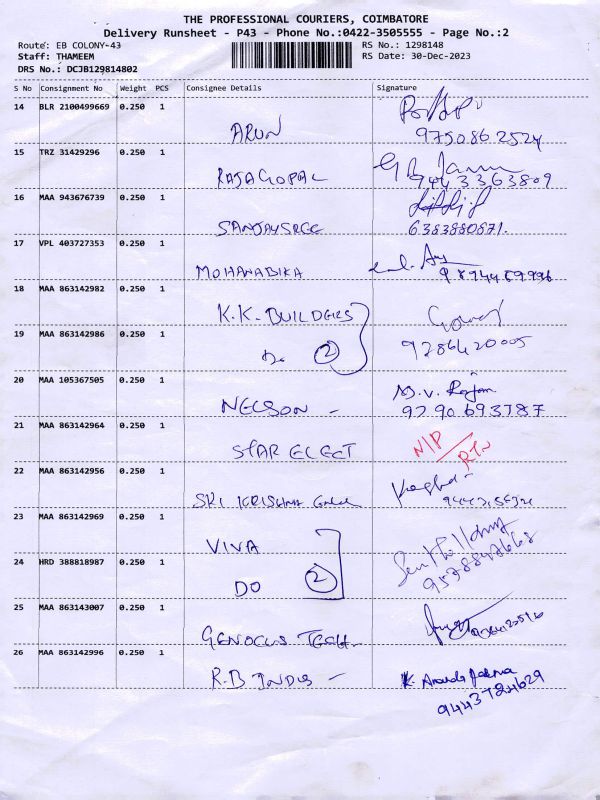 THE PROFESSIONAL COURIERS, COIMBATORE
Delivery Runsheet - P43 - Phone No.:0422-3505555 - Page No.:2
Route: EB COLONY-43 RS No.: 1298148
Staff: THAMEEM RS Date: 30-Dec-2023
DRS No.: DCJB129814802
S No Consignment No Weight PCS Consignee Details Signature
14 BLR 2100499669 0.250 1
ARUN 9750862524
15 TRZ 31429296 0.250 1
RAJAGOPAL 9443363809
16 MAA 943676739 0.250 1
SANJAYSREE 6383880871.
17 VPL 403727353 0.250 1
MOHANABIKA
18 MAA 863142982 0.250 1
K.K. BUILDERS
19 MAA 863142986 0.250 1
Do 2 9286420005
20 MAA 105367505 0.250 1
NELSON - 9790693787
21 MAA 863142964 0.250 1
STAR ELECT N/P / RTN
22 MAA 863142956 0.250 1
SRI KRISHNA
23 MAA 863142969 0.250 1
VIVA
24 HRD 388818987 0.250 1
DO 2 9578847668
25 MAA 863143007 0.250 1
TECH-
26 MAA 863142996 0.250 1
R.B INDUS - K.